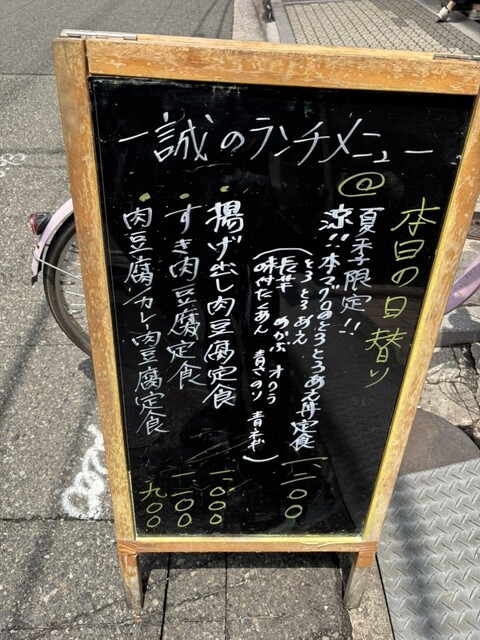 一誠のランチメニュー
本日の日替り
@夏季限定!!
涼!!本マグロのとろとろあえ丼定食 一、二〇〇
(とろとろあえ
長芋 めかぶ オクラ
味付たくあん 青さのり 青ネギ)
・揚げ出し肉豆腐定食 一、〇〇〇
・すき肉豆腐定食 一、一〇〇
・肉豆腐カレー肉豆腐定食 一、九〇〇